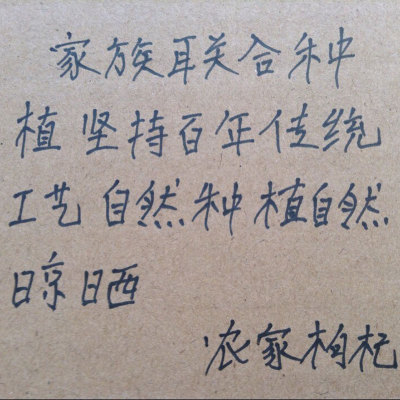 家族联合种
植 坚持百年传统
工艺 自然种植自然
晾晒
农家枸杞